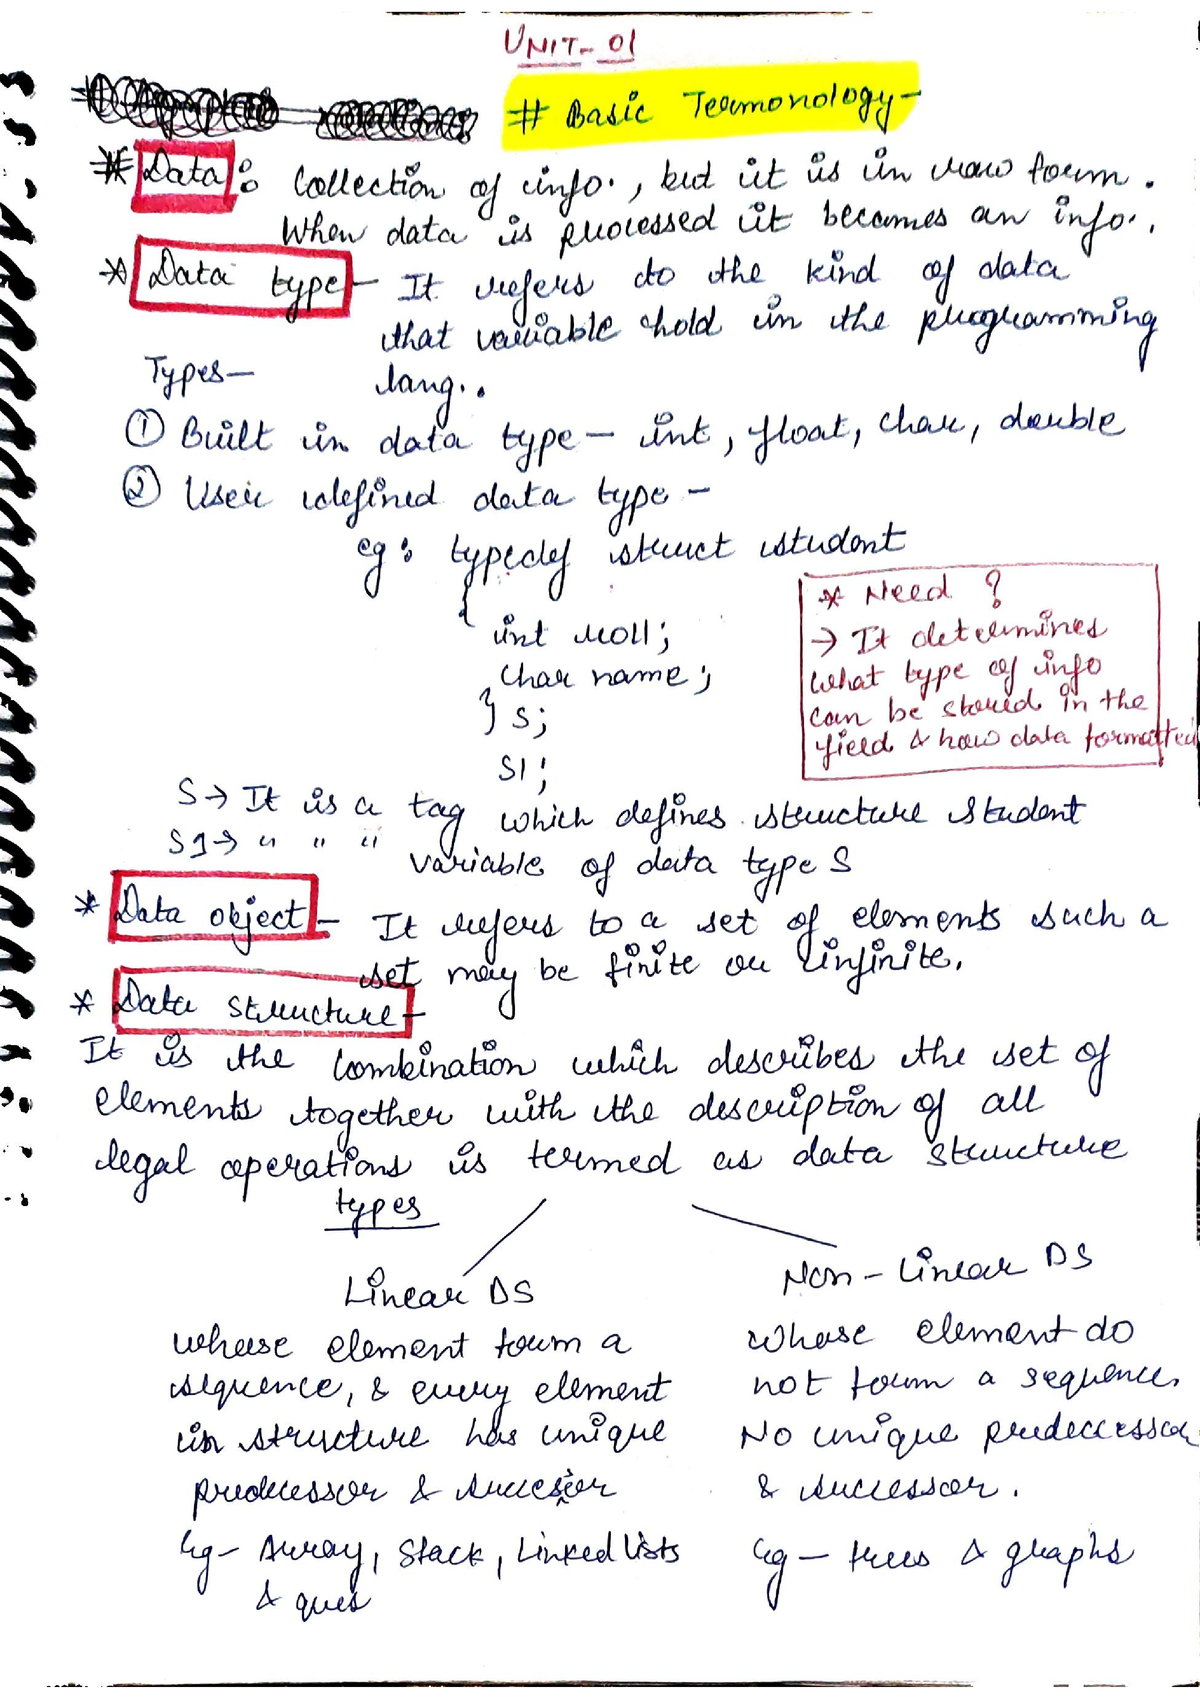 UNIT-01
# Basic Termonology-
* Data : Collection of info., but it is in raw form.
When data is processed it becomes an info..
* Data type - It refers to the kind of data
that variable hold in the programming
lang..
Types-
① Built in data type - int, float, char, double
② User defined data type -
eg: typedef struct student
{
int roll;
char name;
} S;
S1;
* Need ?
→ It determines
what type of info
can be stored in the
field & how data formatted
S→ It is a tag which defines structure student
S1→ " " " variable of data type S
* Data object - It refers to a set of elements such a
set may be finite or infinite.
* Data structure-
It is the combination which describes the set of
elements together with the description of all
legal operations is termed as data structure
types
Linear DS
whose element form a
sequence, & every element
in structure has unique
predecessor & succesor
Eg- Array, Stack, Linked lists
& ques
Non-Linear DS
whose element do
not form a sequence.
No unique predeccessor
& successor.
Eg- trees & graphs